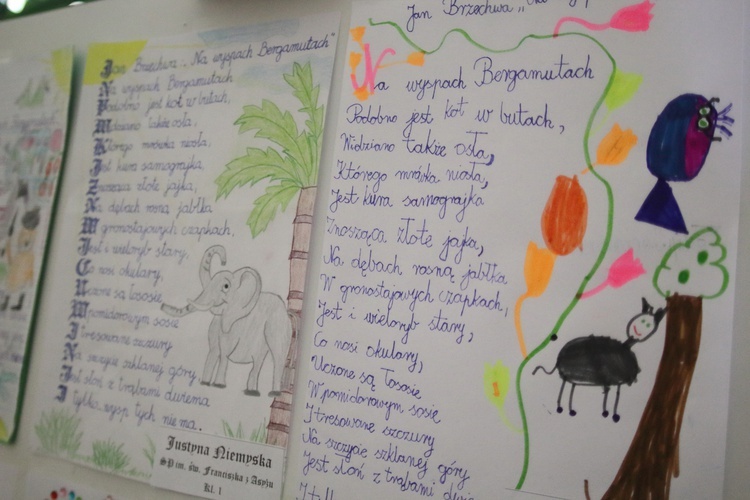 Jan Brzechwa „Na wyspach Bergamutach"
Na wyspach Bergamutach
Podobno jest kot w butach,
Widziano także osła,
Którego mrówka niosła,
Jest kura samograjka
Znosząca złote jajka,
Na dębach rosną jabłka
W gronostajowych czapkach,
Jest i wieloryb stary,
Co nosi okulary,
Uczone są łososie
W pomidorowym sosie
I tresowane szczury
Na szczycie szklanej góry,
Jest słoń z trąbami dwiema
I tylko wysp tych nie ma.
Justyna Niemyska
SP im. św. Franciszka z Asyżu
Kl. 1
Jan Brzechwa „Na
Na wyspach Bergamutach
Podobno jest kot w butach,
Widziano także osła,
Którego mrówka niosła,
Jest kura samograjka
Znosząca złote jajka,
Na dębach rosną jabłka
W gronostajowych czapkach,
Jest i wieloryb stary,
Co nosi okulary,
Uczone są łososie
W pomidorowym sosie
I tresowane szczury
Na szczycie szklanej góry
Jest słoń z trąbami